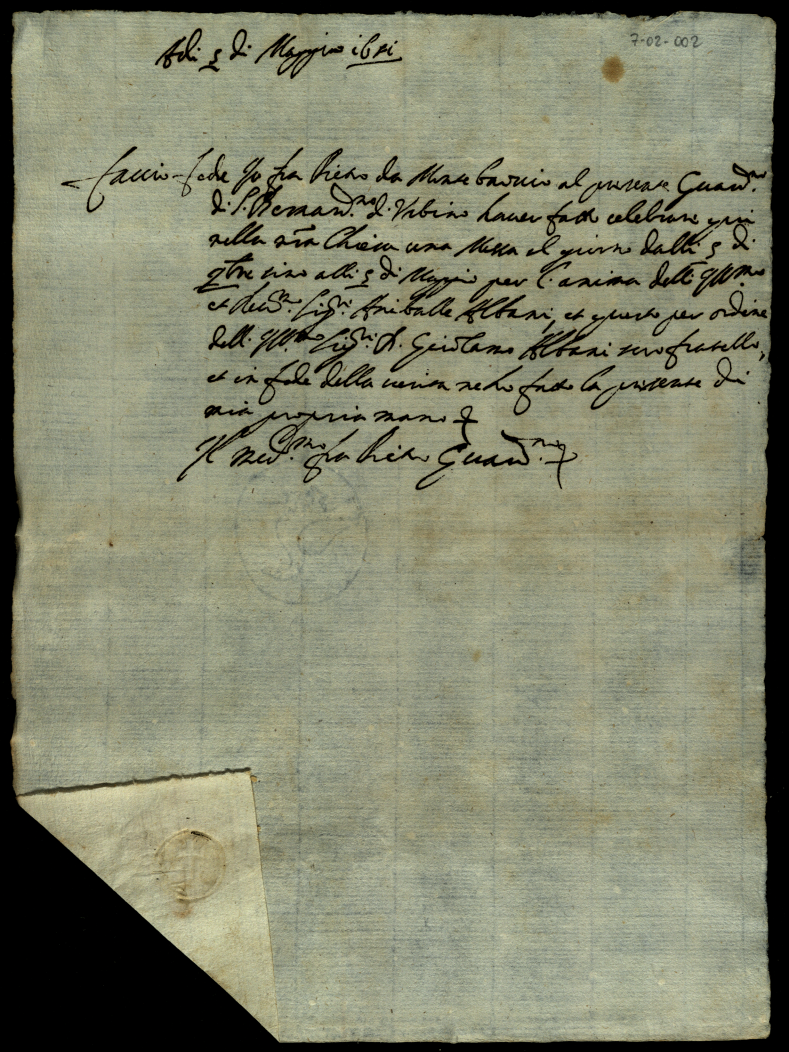 7-02-002
Adi 5 di Maggio 1651
Faccio fede Io fra Pietro da Monte baroccio al presente Guard.no
di S. Bernard.no d'Urbino haver fatto celebrare qui
nella nra Chiesa una Messa il giorno dalli 5 di
sino alli 5 di Maggio per l'anima dell' Ill.mo
et Rev.mo Sig.r Aniballe Albani, et questo per ordine
dell' Ill.mo Sig.r D. Girolamo Albani suo fratello,
et in fede della verità ne ho fatto la presente di
mia propria mano
Il med.mo fra Pietro Guard.no